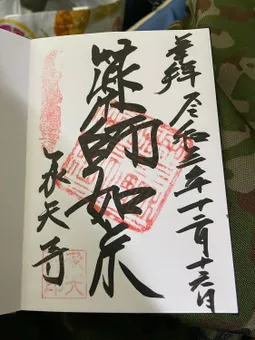 奉拝 令和三年十二月十六日
薬師如来
承天寺